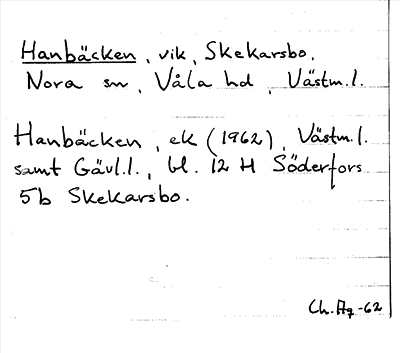 Hanbäcken, vik, Skekarsbo,
Nora sn, Våla hd, Västm.l.
Hanbäcken, ek (1962), Västm.l.
samt Gävl.l., bl. 12 H Söderfors
5b Skekarsbo.
Ch.Ag -62